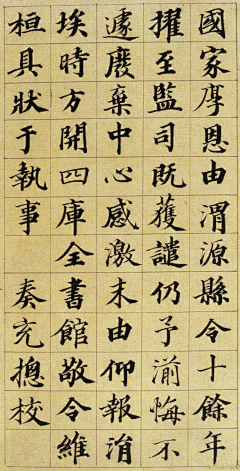 國家厚恩由渭源縣令十餘年
擢至監司既獲譴仍予湔悔不
遽廢棄中心感激末由仰報涓
埃時方開四庫全書館敬令維
桓具狀于執事 奏充摠校